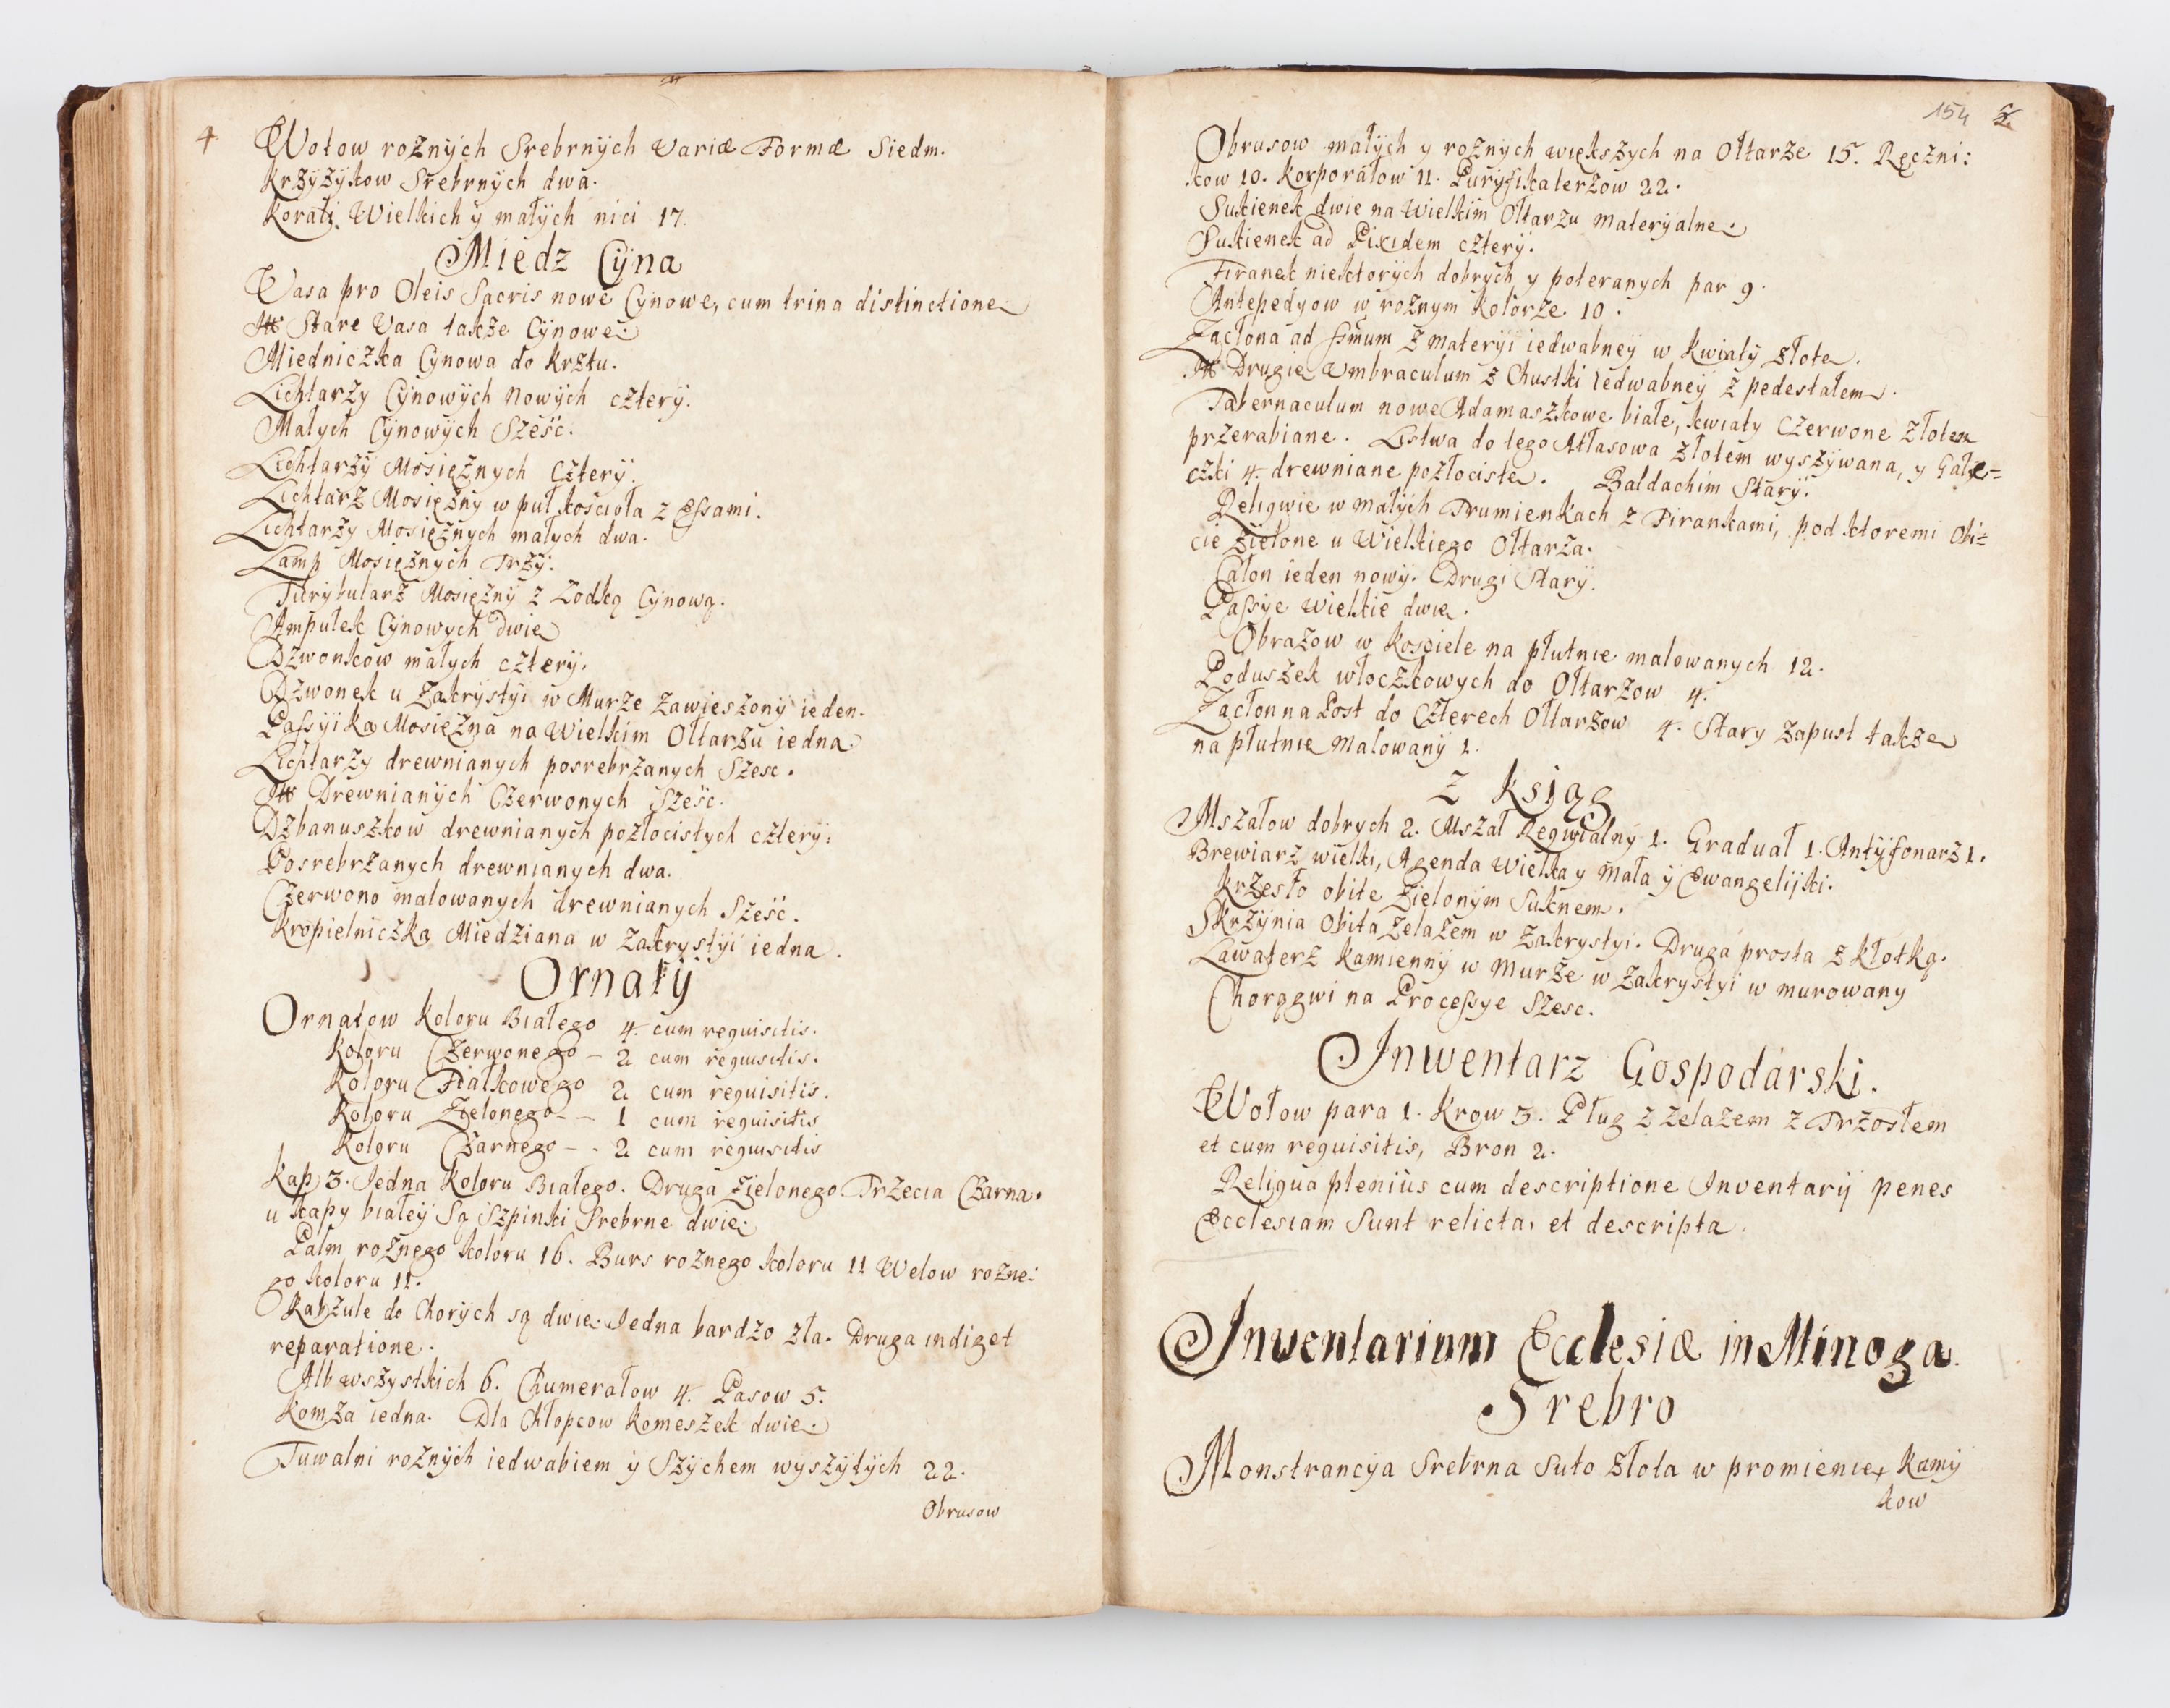 4
Wotow rożnÿch Srebrnÿch variæ Formæ Siedm.
krzÿżÿkow Srebrnych dwa.
korali Wielkich ÿ małÿch nici 17.
Miedz Cÿna
Vasa pro Oleis Sacris nowe Cÿnowe, cum trina distinctione
Stare Vasa także Cÿnowe.
Miedniczka Cÿnowa do krztu.
Lichtarzÿ Cÿnowÿch Nowÿch czterÿ.
Małych Cÿnowÿch Sześć.
Lichtarzÿ Mosiężnych Czterÿ.
Lichtarz Mosiężnÿ w puł kościoła z Essami.
Lichtarzy Mosiężnych małych dwa.
Lamp Mosiężnych Trzÿ.
Turÿbularz Mosiężnÿ z Łodką Cÿnową.
Ampułek Cÿnowych dwie
Dzwonkow małych czterÿ.
Dzwonek u Zakrÿstÿi w Murze zawieszonÿ ieden.
Passÿika Mosiężna na Wielkim Ołtarzu iedna.
Lichtarzy drewnianych posrebrzanych Szesc.
Drewnianÿch Czerwonych Sześc.
Dzbanuszkow drewnianych pozłocistych czterÿ.
Posrebrzanych drewnianych dwa.
Czerwono malowanych drewnianych Sześć.
kropielniczka Miedziana w Zakrystÿi iedna.
Ornatÿ
Ornatow koloru Białego 4. cum requisitis.
koloru Czerwonego – 2 cum requisitis.
koloru Fiałkowego 2 cum requisitis.
koloru Zielonego – – 1 cum requisitis
koloru Czarnego – . 2 cum requisitis
kap 3. Jedna koloru Białego. Druga Zielonego Trzecia Czarna.
u kapy białeÿ są Szpinki Srebrne dwie.
Palm rożnego koloru 16. Burs rożnego koloru 11 Welow rożne:
go koloru 11.
kabzule do Chorÿch są dwie. Jedna bardzo zła. Druga indiget
reparatione.
Alb wszystkich 6. Chumerałow 4. Pasow 5.
komża iedna. Dla Chłopcow komeszek dwie.
Tuwalni rożnÿch iedwabiem ÿ Szÿchem wyszÿtÿch 22.
Obrusow
154 5.
Obrusow małÿch y rożnÿch większych na Ołtarze 15. Ręczni:
kow 10. korporałow 11. Purÿfikaterzow 22.
Sukienek dwie na Wielkim Ołtarzu materÿalne.
Sukienek ad Pixidem czterÿ.
Firanek niektorÿch dobrÿch y poteranych par 9.
Antepedyow w rożnym kolorze 10.
Zasłona ad ssmum z materÿi iedwabneÿ w kwiatÿ złote.
Drugie Vmbraculum z Chustki iedwabneÿ z pedestałem.
Tabernaculum nowe Adamaszkowe białe, kwiaty Czerwone złotem
przerabiane. Listwa do tego Atłasowa złotem wyszÿwana, y Gałe=
czki 4. drewniane pozłociste. Baldachim Starÿ.
Reliqwie w małÿch Trumienkach z Firankami, pod ktoremi Obi=
cie zielone u Wielkiego Ołtarza.
Całon ieden nowÿ. Drugi Starÿ.
Passye Wielkie dwie.
Obrazow w kosciele na płutnie malowanych 12.
Poduszek włoczkowych do Ołtarzow 4.
Zasłon na Post do Czterech Ołtarzow 4. Stary zapust także
na płutnie Malowanÿ 1.
z ksiąg
Mszałow dobrych 2. Mszał Reqwialnÿ 1. Graduał 1. Antÿfonarz 1.
Brewiarz wielki, Agenda Wielka y Mała ÿ Ewangelijki.
krzesło obite zielonÿm Suknem.
Skrzÿnia Obita żelazem w Zakrystÿi. Druga prosta z kłotką.
Lawaterz kamiennÿ w Murze w Zakrystyi w murowany
Chorągwi na Processye Szesc.
Inwentarz Gospodarski.
Wołow para 1. krow 3. Pług z żelazem z Trzosłem
et cum requisitis, Bron 2.
Reliqua plenius cum descriptione Inventarÿ penes
Ecclesiam Sunt relicta, et descripta.
Inwentarium Ecclesiæ in Minoga.
Srebro
Monstrancÿa Srebrna Suto złota w promienie, kamÿ
kow